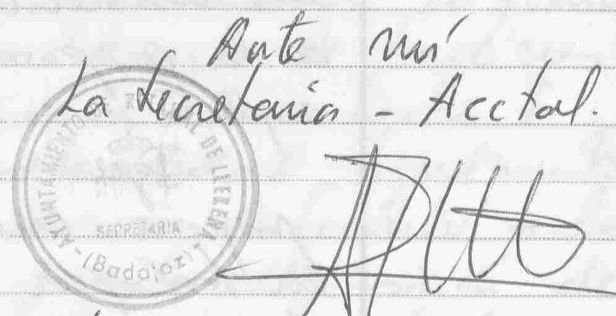 Ante mí
La Secretaria - Acctal.
AYUNTAMIENTO DE LLERENA
SECRETARIA
(Badajoz)